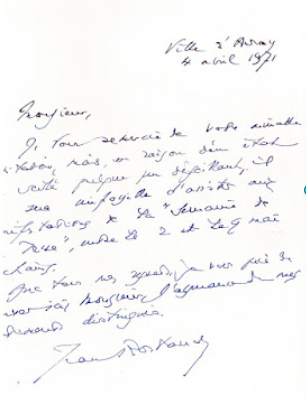 Ville d'Avray
4 avril 1971
Monsieur,
Je vous remercie de votre aimable
invitation, mais, en raison d'un état de
santé quelque peu déficitaire, il
me sera impossible d'assister aux
manifestations de la "Semaine de
", entre le 2 et le 9 mai
Avec tous mes regrets, je vous prie de
Monsieur, l'agrément de mes
sentiments distingués.
Jean Rostand